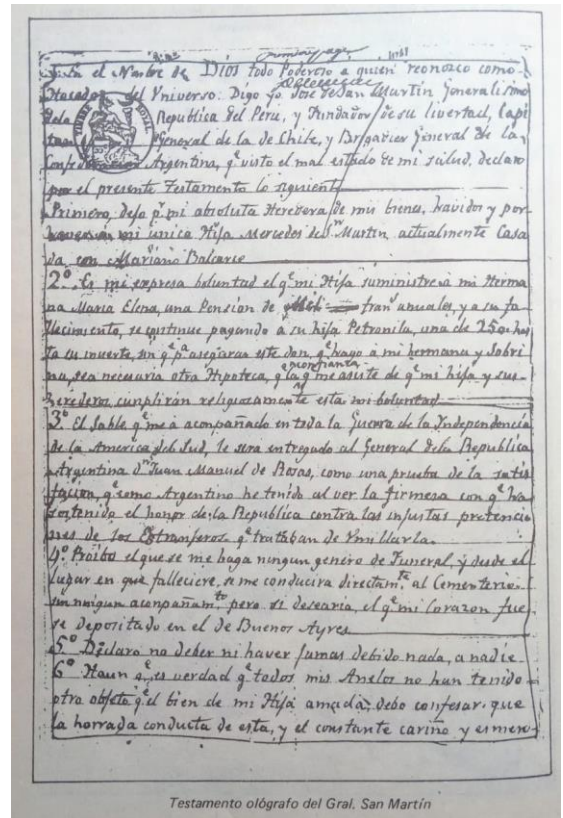 En el Nombre de Dios todo Poderoso a quien reconosco como
Hacedor del Universo: Digo yo José de San Martin Generalisimo
de la Republica del Peru, y Fundador de su livertad, Capi
General de la de Chile, y Brigadier General de la
Confederacion Argentina, q.e visto el mal estado de mi salud, declaro
por el presente Testamento lo siguiente
Primero, dejo p.r mi absoluta Heredera de mis bienes, havidos y por
haver a mi unica Hija Mercedes de S.n Martin actualmente Casa
da con Mariano Balcarce
2.º Es mi expresa boluntad el q.e mi Hija suministre a mi Herma
na Maria Elena, una Pension de fran.s anuales, y a su fa
llecimiento, se continue pagando a su hija Petronila, una de 250 has
ta su muerte, sin q.e p.a asegurar este don, q.e hago a mi hermana y sobri
na, sea necesaria otra Hipoteca, q.e la confianza q.e me asiste de q.e mi hija y sus
herederos cumplirán religiosamente esta mi boluntad
3.º El Sable q.e me a acompañado en toda la Guerra de la Yndependencia
de la America del Sud, le sera entregado al General de la Republica
Argentina D.n Juan Manuel de Rosas, como una prueba de la satis
faccion, q.e como Argentino he tenido al ver la firmeza con q.e ha
sostenido el honor de la Republica contra las injustas pretencio
nes de los Estranjeros q.e trataban de Umillarla.
4.º Proibo el que se me haga ningun genero de Funeral, y desde el
lugar en que falleciere, se me conducira directam.te al Cementerio
sin ningun acompañam.to pero si desearia, el q.e mi Corazon fue
se depositado en el de Buenos Ayres
5.º Declaro no deber ni haver jamas debido nada, a nadie
6.º Haun q.e es verdad q.e todos mis Anelos no han tenido
otro objeto q.e el bien de mi Hija amada, debo confesar, que
la honrada conducta de esta, y el constante cariño y esmero
Testamento ológrafo del Gral. San Martín